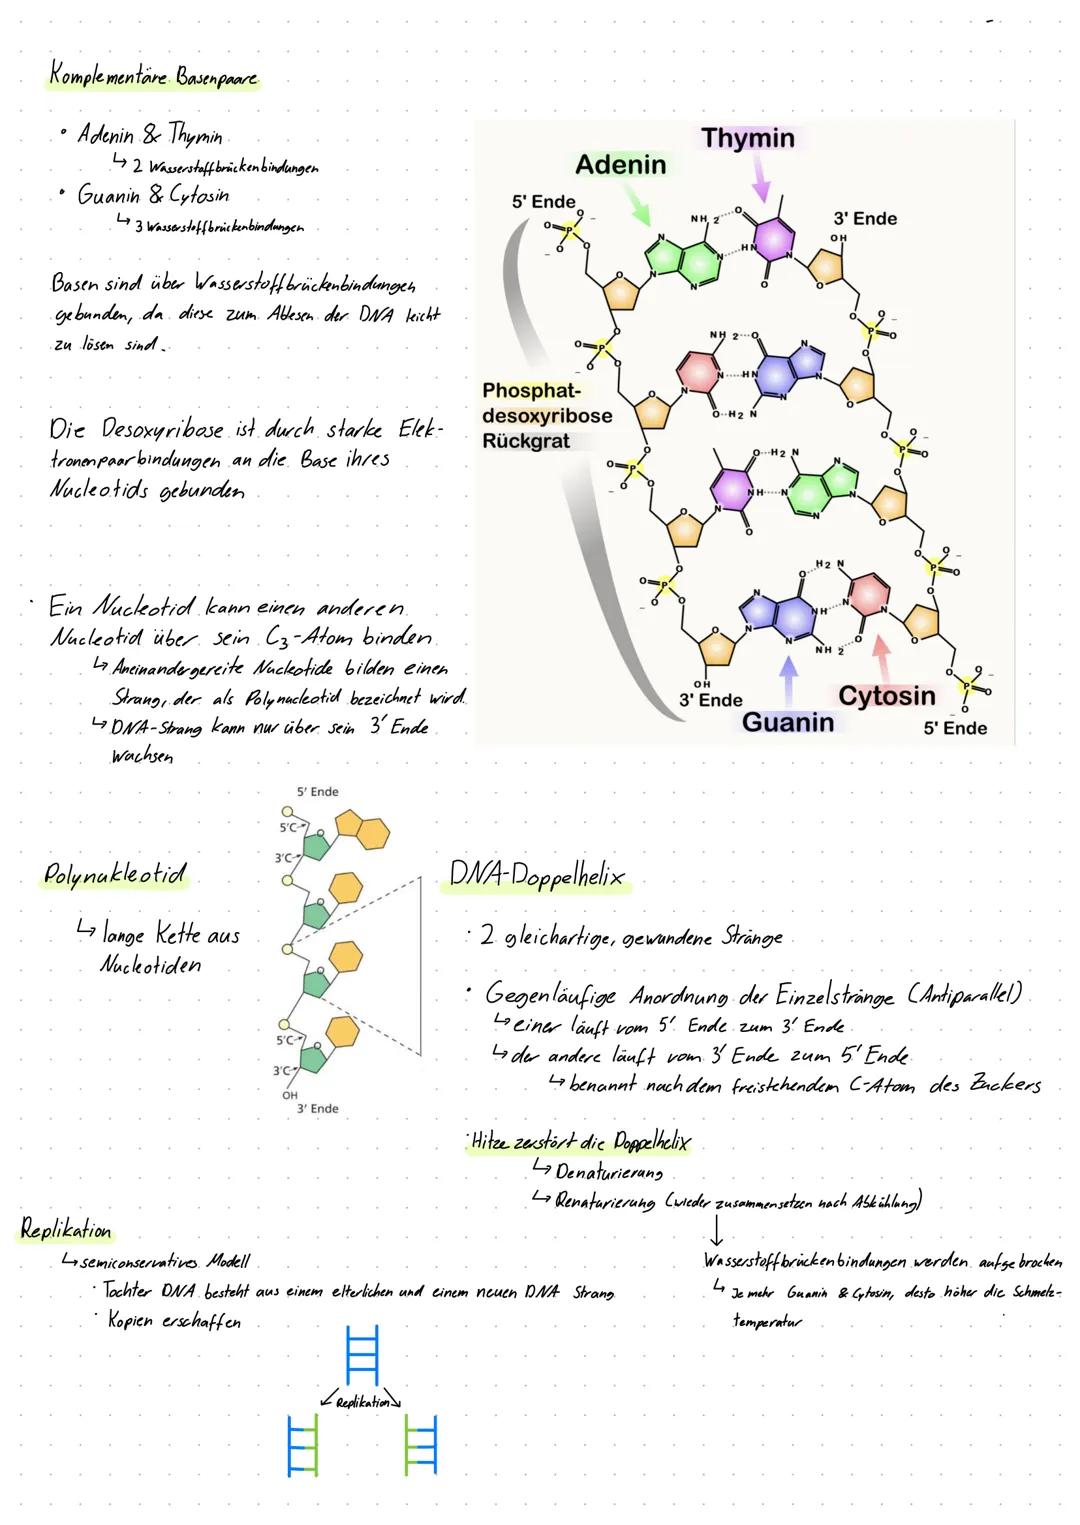 Komplementäre Basenpaare
• Adenin & Thymin
↳ 2 Wasserstoffbrückenbindungen
• Guanin & Cytosin
↳ 3 Wasserstoffbrückenbindungen
Basen sind über Wasserstoffbrückenbindungen
gebunden, da diese zum Ablesen der DNA leicht
zu lösen sind.
Die Desoxyribose ist durch starke Elek-
tronenpaarbindungen an die Base ihres
Nucleotids gebunden
· Ein Nucleotid kann einen anderen
Nucleotid über sein C3-Atom binden
↳ Aneinandergereite Nucleotide bilden einen
Strang, der als Polynucleotid bezeichnet wird.
↳ DNA-Strang kann nur über sein 3' Ende
wachsen
Thymin
Adenin
5' Ende
3' Ende
OH
NH 2
O
HN
N
N
N
N
N
O
O
P
NH 2
O
N
HN
N
O
H2 N
N
N
N
Phosphat-
desoxyribose
Rückgrat
O
H2 N
NH
N
N
O
N
N
N
O
H2 N
NH
N
N
N
N
N
NH 2
O
OH
3' Ende
Guanin
Cytosin
5' Ende
5' Ende
5'C
3'C
5'C
3'C
OH
3' Ende
Polynukleotid
↳ lange Kette aus
Nucleotiden
DNA-Doppelhelix
· 2 gleichartige, gewundene Stränge
• Gegenläufige Anordnung der Einzelstränge (Antiparallel)
↳ einer läuft vom 5' Ende zum 3' Ende
↳ der andere läuft vom 3' Ende zum 5' Ende
↳ benannt nach dem freistehendem C-Atom des Zuckers
· Hitze zerstört die Doppelhelix
↳ Denaturierung
↳ Renaturierung (wieder zusammensetzen nach Abkühlung)
Wasserstoffbrückenbindungen werden aufgebrochen
↳ Je mehr Guanin & Cytosin, desto höher die Schmelz-
temperatur
Replikation
↳ semiconservatives Modell
· Tochter DNA besteht aus einem elterlichen und einem neuen DNA Strang
· Kopien erschaffen
Replikation